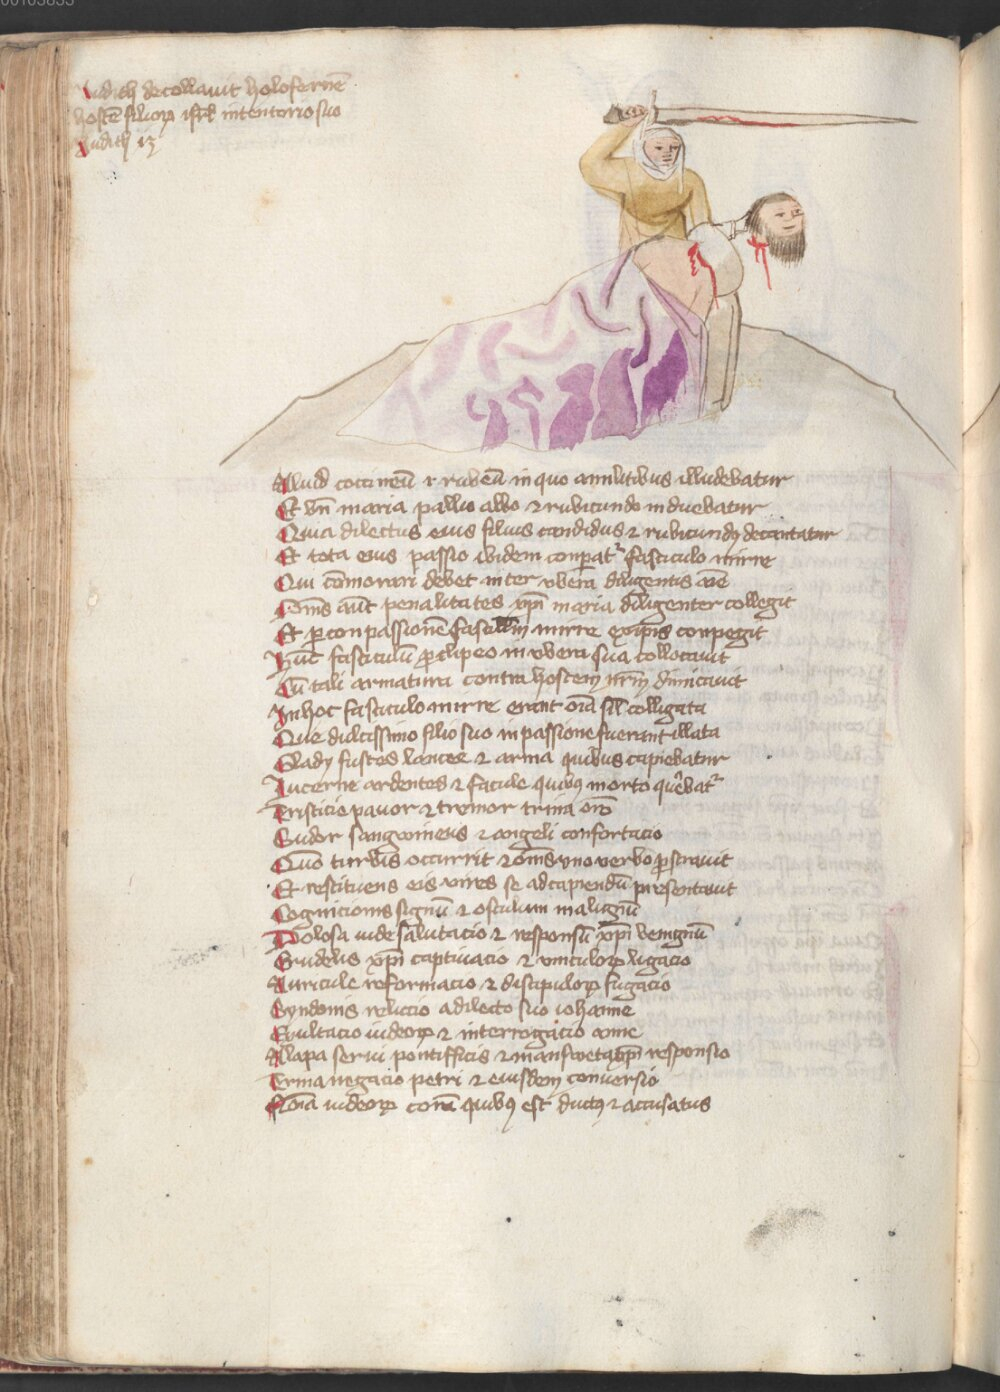 00103853
Judith decollauit holofernē
hostē filioꝝ isrl̄ in tentorio suo
Judith 13
Aliud coccineū ⁊ rubeū in quo a militibus illudebatur
Et bn̄ maria pallio albo ⁊ rubicundo induebatur
Quia dilectus eius filius candidus ⁊ rubicundꝰ decantatur
Et tota eius passio ibidem conparat᷑ fasciculo mirre
Qui cōmorari debet inter vbera diligentis aīe
Om̄s aut̄ penalitates xp̄i maria diligenter collegit
Et ꝑ conpassionē mirre ex ip̄is conpegit
Hūc fasciculū ꝓ clipeo in vbera sua collocauit
Cū tali armatura contra hostem nr̄m dimicauit
In hoc fasciculo mirre erant oīa sil̄ colligata
Que dulcissimo filio suo in passione fuerant illata
Glady fustes lancee ⁊ arma quibus capiebatur
Lucerne ardentes ⁊ facule quibꝰ morto querebat᷑
Tristicie pauor ⁊ tremor trina orō
Sudor sangwineus ⁊ angeli confortacio
Quō turbis occurrit ⁊ om̄s vno verbo ꝓstrauit
Et restituens eis vires se ad capiendū presentauit
Cognicionis signū ⁊ osculum malignū
Dolosa iude salutacio ⁊ responsū xp̄i benignū
Crudelis xp̄i captiuacio ⁊ vinculoꝝ ligacio
Auricule reformacio ⁊ discipuloꝝ fugacio
Syndonis relictio a dilecto suo iohanne
Exultacio iudeoꝝ ⁊ interrogacio anne
Alapa serui pontificis ⁊ mansweta xp̄i responsio
Terna negacio petri ⁊ eiusdem conuersio
Noīa iudeoꝝ corā quibꝰ est ductꝰ ⁊ accusatus